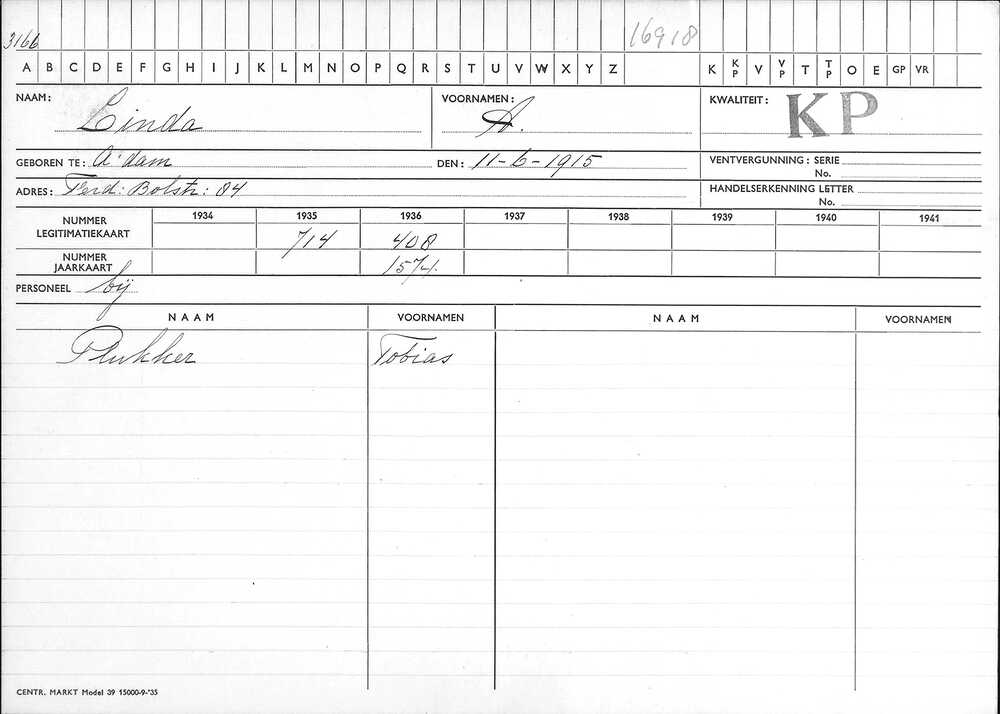 3166 16918
A B C D E F G H I J K L M N O P Q R S T U V W X Y Z K KP V VP T TP O E GP VR
NAAM: Linda VOORNAMEN: A. KWALITEIT: KP
GEBOREN TE: A'dam DEN: 11-6-1915 VENTVERGUNNING: SERIE
No.
ADRES: Ferd: Bolstr: 84 HANDELSERKENNING LETTER
No.
1934 1935 1936 1937 1938 1939 1940 1941
NUMMER
LEGITIMATIEKAART 714 408
NUMMER
JAARKAART 1574.
PERSONEEL bij
NAAM VOORNAMEN NAAM VOORNAMEN
Plukker Tobias
CENTR. MARKT Model 39 15000-9-'35